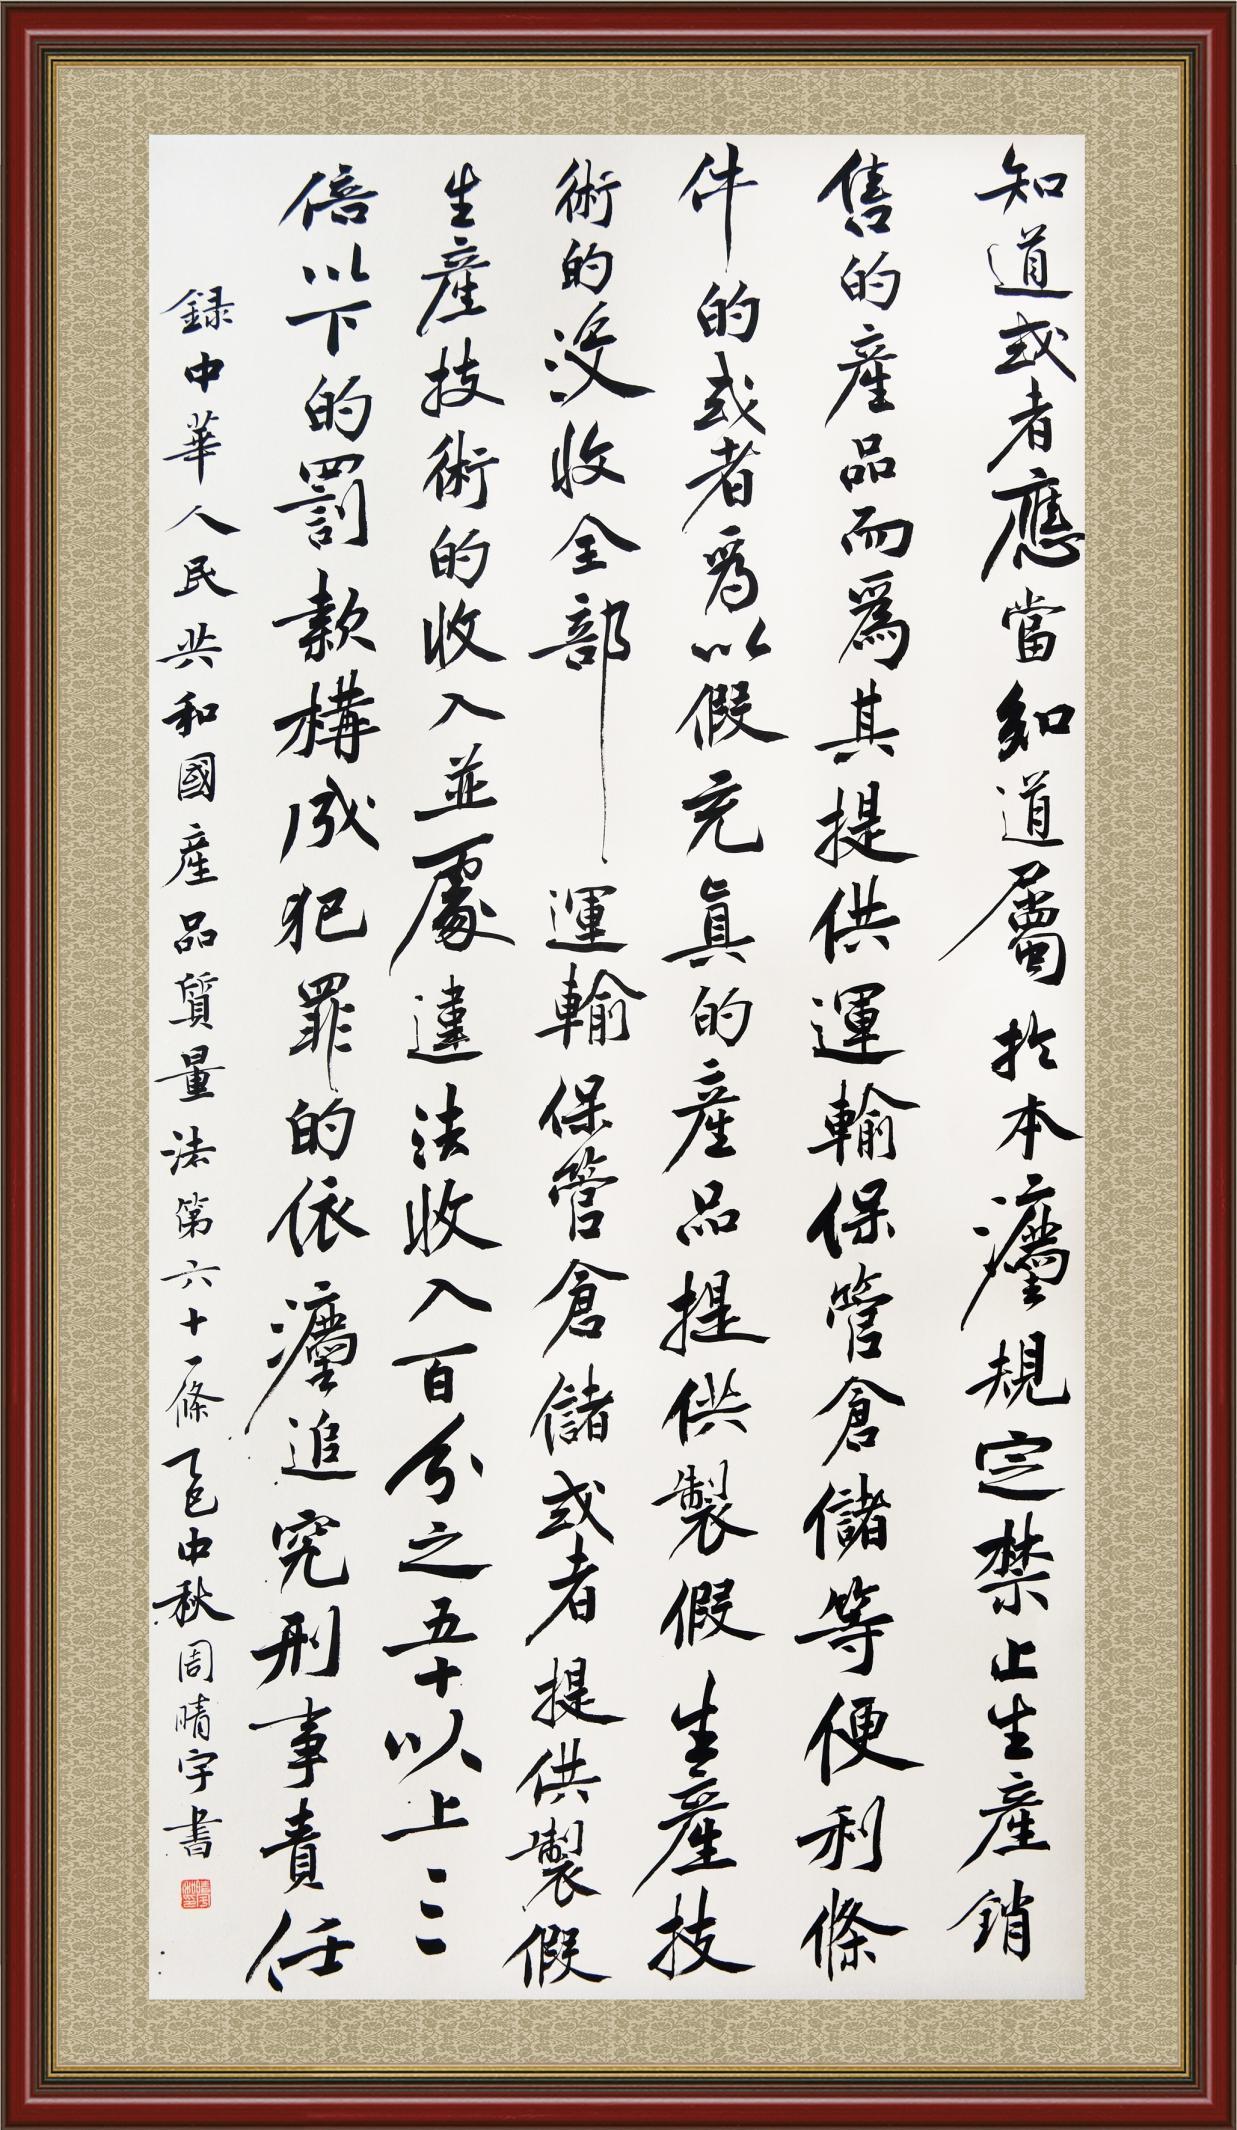 知道或者應當知道屬扵本灋規定禁止生産銷
售的産品而爲其提供運輸保管倉儲等便利條
件的或者爲以假充眞的産品提供製假生産技
術的没收全部運輸保管倉儲或者提供製假
生産技術的收入並處違法收入百分之五十以上三
倍以下的罰款構成犯罪的依灋追究刑事責任
録中華人民共和國産品質量法第六十一條乙巳中秋周晴宇書